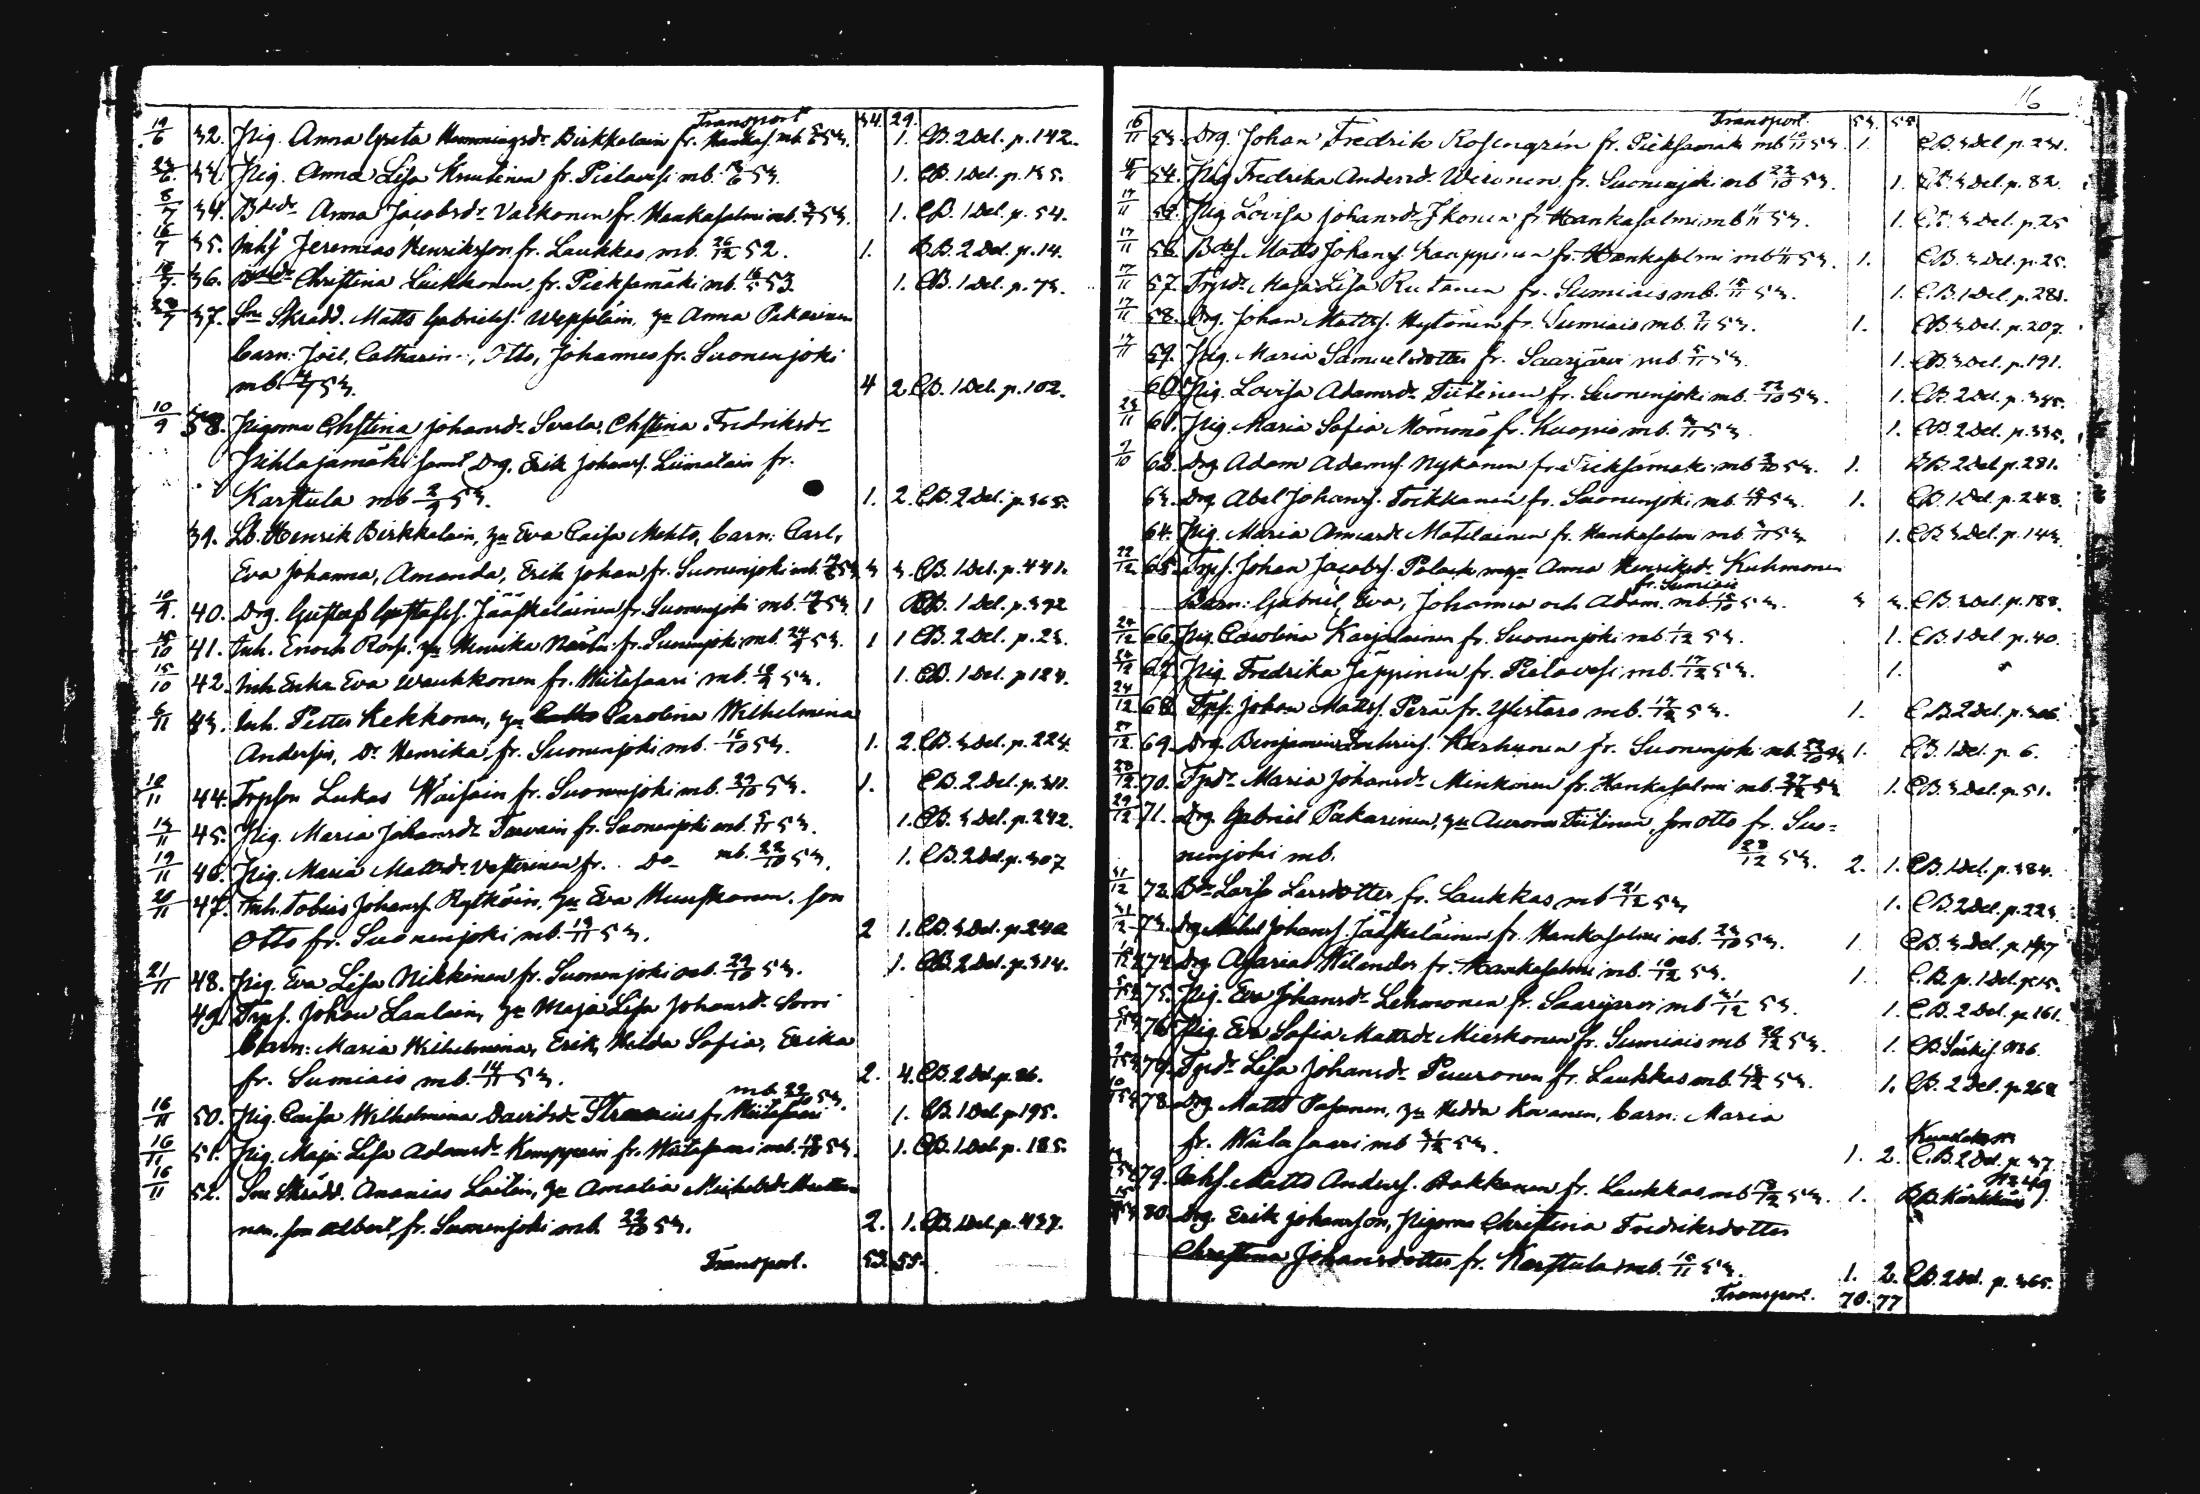 Transport 34. 29.
19/6 32. Pig. Anna Greta Hemmingsdr Birkkalain fr. Hankas. mb. 5/6 53. 1. CB. 2 Del. p. 142.
33. Pig. Anna Lisa Knutinen fr. Pielavesi mb. 53. 1. CB. 1 Del. p. 135.
8/7 34. Anna Jacobsdr Valkonen fr. Hankasalmi mb. 53. 1. CB. 1 Del. p. 54.
16/7 35. Inhs Jeremias Henriksson fr. Laukkas mb. 26/12 52. 1. BB. 2 Del. p. 14.
36. Christina Liukkonen fr. Pieksamäki mb. 16/5 53. 1. CB. 1 Del. p. 73.
37. Sn Skrädd. Matts Gabrielss. Wepsäläin, Hu Anna Pakarinen
barn: Joel, Catharin, Otto, Johannes fr. Suonenjoki
mb. 53. 4 2. CB. 1 Del. p. 102.
10/9 38. Pigorna Chstina Johansdr Svala, Chstina Fredriksdr
Pihlajamäki samt Drg. Erik Johans. Liimatain fr.
Karstula mb 2/9 53. 1. 2. CB. 2 Del. p. 365.
39. Lb. Henrik Birkkalain, Hu Eva Caisa Mehto, barn: Carl,
Eva Johanna, Amanda, Erik Johan fr. Suonenjoki mb. 53. 3 3. CB. 1 Del. p. 441.
10/9. 40. Drg. Gustaf Gustafss. Jääskeläinen fr. Suonenjoki mb. 53. 1 CB. 1 Del. p. 392
15/10 41. Inh. Enoch Hu Henrika fr. Suonenjoki mb. 24/9 53. 1 1 CB. 2 Del. p. 23.
15/10 42. Inh. Enka Eva Waukkonen fr. Wiitasaari mb. 53. 1. CB. 1 Del. p. 124.
6/11 43. Inh. Petter Kekkonen, Hu Carolina Wilhelmina
Andersin, Dr Henrika fr. Suonenjoki mb. 16/10 53. 1. 2. CB. 3 Del. p. 224.
10/11 44. Trpson Lukas Wäisäin fr. Suonenjoki mb. 29/10 53. 1. CB. 2 Del. p. 311.
14/11 45. Pig. Maria Johansdr Tarvain fr. Suonenjoki mb. 53. 1. CB. 3 Del. p. 242.
19/11 46. Pig. Maria Mattsdr Vesterinen fr. Do mb. 22/10 53. 1. CB. 2 Del. p. 307
20/11 47. Inh. Tobias Johans. Rytköin, Hu Eva Huuskonen, son
Otto fr. Suonenjoki mb. 19/11 53. 2 1. CB. 3 Del. p. 240
21/11 48. Pig. Eva Lisa Nikkinen fr. Suonenjoki mb. 29/10 53. 1. CB. 2 Del. p. 314.
49. Trps. Johan Laulain, Hu Maja Lisa Johansdr Sorri
barn: Maria Wilhelmina, Erik, Hilda Sofia, Erika
fr. Sumiais mb. 14/11 53. 2. 4. CB. 2 Del. p. 86.
16/11 50. Pig. Caisa Wilhelmina Davidsdr Stranius fr. Wiitasaari mb. 22/10 53. 1. CB. 1 Del. p. 195.
16/11 51. Pig. Maja Lisa Adamsdr Kemppain fr. Wiitasaari mb. 53. 1. CB. 1 Del. p. 185.
16/11 52. Sn Skrädd. Ananias Laitin, Hu Amalia Michelsdr
nen, son Albert, fr. Suonenjoki mb. 22/10 53. 2. 1. CB. 1 Del. p. 437.
Transport. 53. 55.
16
Transport. 53. 55
16/11 53. Drg. Johan Fredrik Rosengrén fr. Pieksamäki mb. 53. 1. CB. 3 Del. p. 231.
54. Pig. Fredrika Andersdr Wironen fr. Suonenjoki mb. 22/10 53. 1. CB. 3 Del. p. 82.
17/11 55. Pig. Lovisa Johansdr Ikonen fr. Hankasalmi mb. 53. 1. CB. 3 Del. p. 25
17/11 56. Matts Johans. Kauppinen fr. Hankasalmi mb. 53. 1. CB. 3 Del. p. 25.
17/11 57. Trpdr Maja Lisa Rutanen fr. Sumiais mb. 53. 1. C.B. 1 Del. p. 281.
17/11 58. Drg. Johan Mattss. Hytönen fr. Sumiais mb. 53. 1. CB. 3 Del. p. 207.
17/11 59. Pig. Maria Samuelsdotter fr. Saarijärvi mb. 5/11 53. 1. CB. 3 Del. p. 191.
60. Pig. Lovisa Adamsdr Tiitinen fr. Suonenjoki mb. 22/10 53. 1. CB. 2 Del. p. 345.
23/11 61. Pig. Maria Sofia Mömmö fr. Kuopio mb. 53. 1. CB. 2 Del. p. 335.
62. Drg. Adam Adams. Nykänen fr. Pieksämäki mb. 53. 1. BB. 2 Del. p. 281.
63. Drg. Abel Johans. Toikkanen fr. Suonenjoki mb. 53. 1. CB. 1 Del. p. 248.
64. Pig. Maria Matilainen fr. Hankasalmi mb. 53. 1. CB. 3 Del. p. 143.
22/12 65. Trps. Johan Jacobs. Polack m. Hu Anna Henriksdr Kuhmonen
fr. Sumiais
Barn: Gabriel, Eva, Johanna och Adam. mb. 53. 3 3. CB. 3 Del. p. 188.
24/12 66. Pig. Carolina Karjalainen fr. Suonenjoki mb. 1/12 53. 1. CB. 1 Del. p. 40.
67. Pig. Fredrika Jäppinen fr. Pielavesi mb. 17/12 53. 1. "
24/12 68. Trps. Johan Mattss. Perä fr. Ylistaro mb. 17/12 53. 1. CB. 2 Del. p. 306.
27/12 69. Drg. Benjamin Karhunen fr. Suonenjoki mb. 53 1. CB. 1 Del. p. 6.
28/12 70. Tpdr Maria Johansdr Minkonen fr. Hankasalmi mb. 27/12 53 1. CB. 3 Del. p. 51.
29/12 71. Drg. Gabriel Pakarinen, Hu Aurora Tiitinen, son Otto fr. Suo=
nenjoki mb. 28/12 53. 2. 1. CB. 1 Del. p. 384.
31/12 72. Lovisa Larsdotter fr. Laukkas mb 21/12 53 1. CB. 2 Del. p. 223.
31/12 73. Drg. Michel Johans. Jääskeläinen fr. Hankasalmi mb. 23/10 53. 1. CB. 3 Del. p. 147
74. Drg. Asarias Wilander fr. Hankasalmi mb. 10/12 53. 1. C.B. p. 1 Del. p. 15.
75. Pig. Eva Johansdr Lehmonen fr. Saarijärvi mb. 31/12 53. 1. C.B. 2 Del. p. 161.
76. Pig. Eva Sofia Mattsdr Mieskonen fr. Sumiais mb. 53. 1. CB. Särkis. No 6.
77. Tpdr Lisa Johansdr Puuronen fr. Laukkas mb. 53. 1. CB. 2 Del. p. 268
78. Drg. Matts Pasanen, Hu Hedda Kovanen, barn: Maria
fr. Wiitasaari mb 31/12 53. 1. 2. C.B. 2 Del. p. 37.
79. Inhs. Matts Anders. Hakkanen fr. Laukkas mb. 53. 1. BB. Kärkkäis
80. Drg. Erik Johansson, Pigorna Christina Fredriksdotter
Christina Johansdotter fr. Karstula mb. 15/11 53. 1. 2. CB. 2 Del. p. 365.
Transport. 70. 77